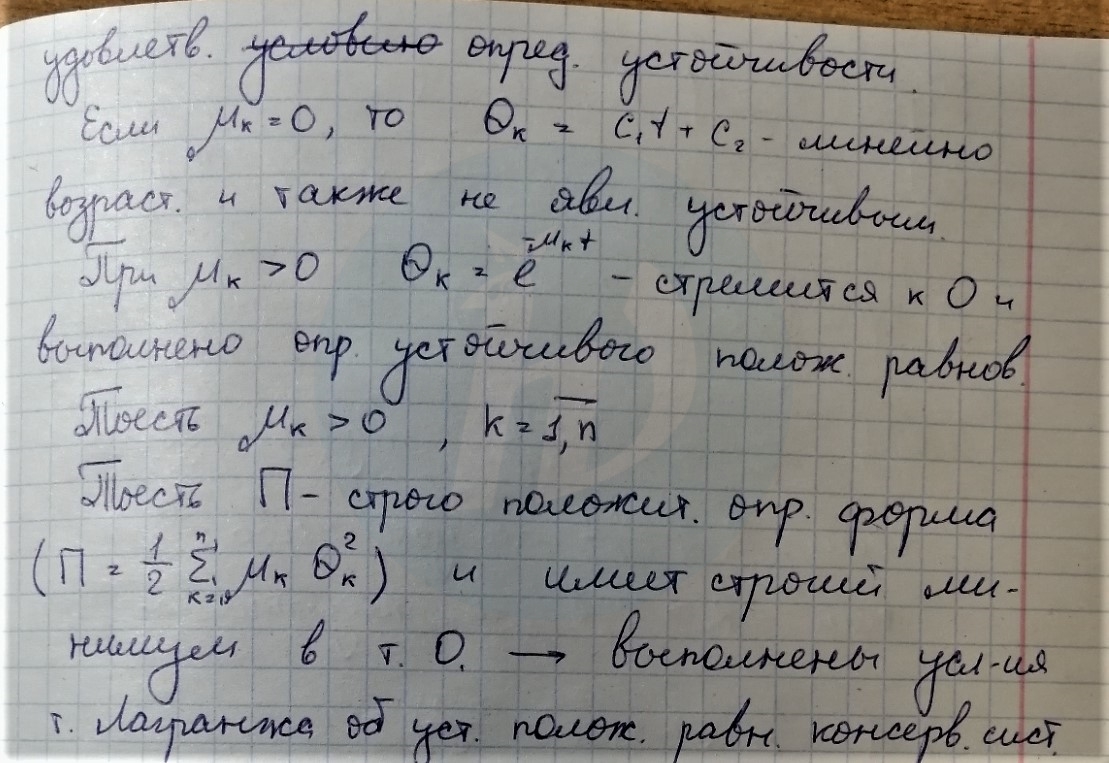 удовлетв. условию опред. устойчивости.
Если μₖ = 0, то Θₖ = C₁t + C₂ - линейно
возраст. и также не явл. устойчивым.
При μₖ > 0 Θₖ = e^(-μₖt) - стремится к 0 и
выполнено опр. устойчивого полож. равнов.
Тоесть μₖ > 0 , k = 1,n
Тоесть П - строго положит. опр. форма
(П = 1/2 Σₖ₌₁ⁿ μₖ Θₖ²) и имеет строгий ми-
нимум в т. О. → выполнены усл-ия
т. Лагранжа об уст. полож. равн. консерв. сист.